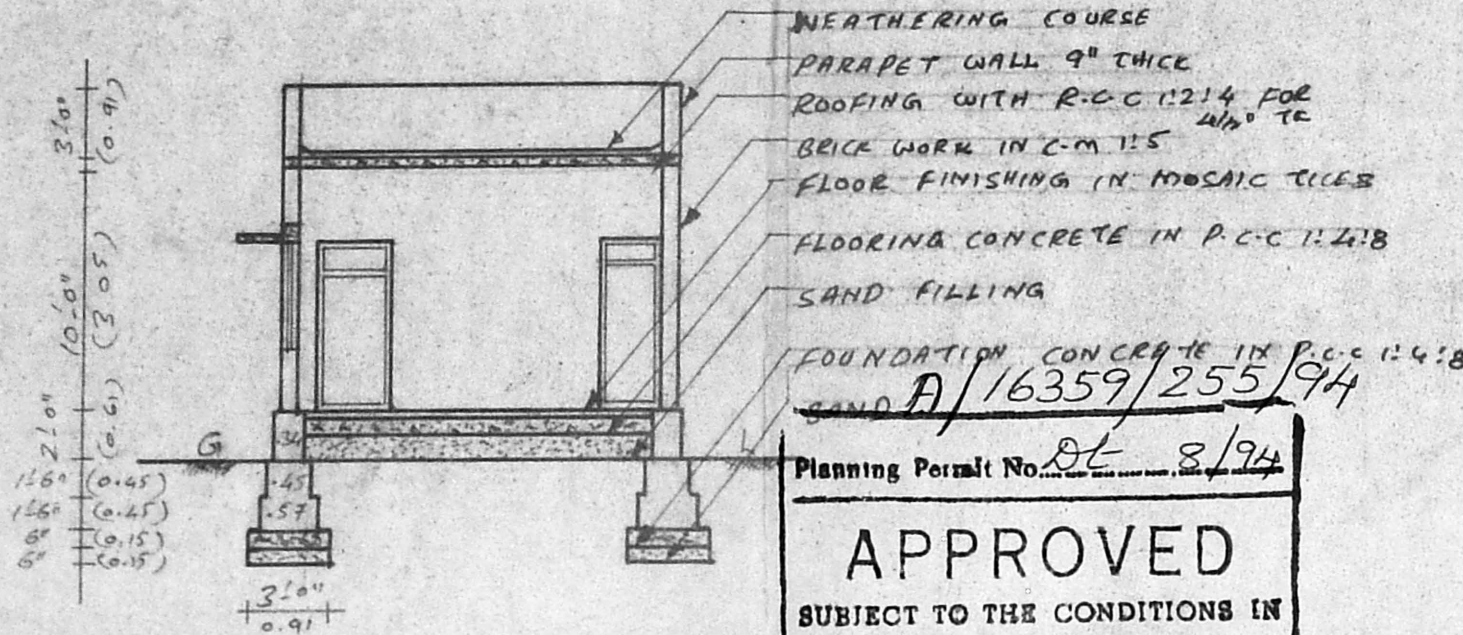 WEATHERING COURSE
PARAPET WALL 9" THICK
ROOFING WITH R.C.C 1:2:4 FOR
4½" TK
BRICK WORK IN C.M 1:5
FLOOR FINISHING IN MOSAIC TILES
FLOORING CONCRETE IN P.C.C 1:4:8
SAND FILLING
FOUNDATION CONCRETE IN P.C.C 1:4:8
SAND A/16359/255/94
Planning Permit No. Dt 8/94
APPROVED
SUBJECT TO THE CONDITIONS IN
3'-0"
(0.91)
10'-0"
(3.05)
2'-0"
(0.61)
G L
1'-6" (0.45)
1'-6" (0.45)
6" (0.15)
6" (0.15)
.45
.57
3'-0"
0.91